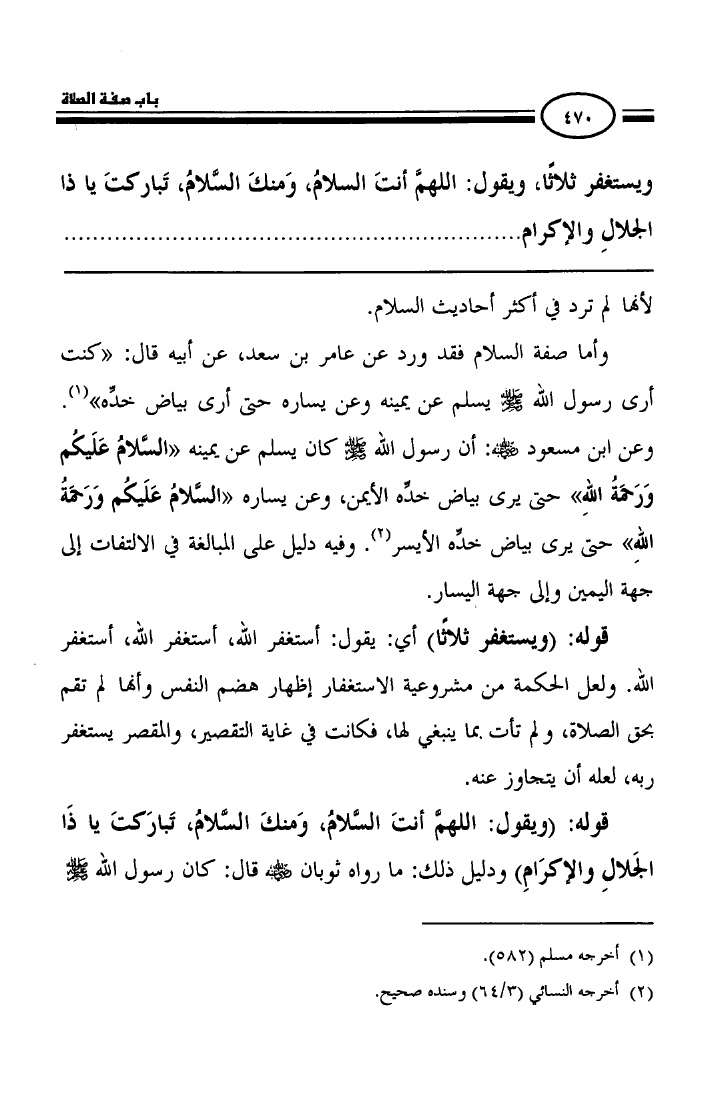 باب صفة الصلاة
٤٧٠
ويستغفر ثلاثًا، ويقول: اللهمَّ أنتَ السلامُ، وَمنكَ السَّلامُ، تَباركتَ يا ذا
الجلالِ والإكرام............................................................
لأنها لم ترد في أكثر أحاديث السلام.
وأما صفة السلام فقد ورد عن عامر بن سعد، عن أبيه قال: «كنت
أرى رسول الله ﷺ يسلم عن يمينه وعن يساره حتى أرى بياض خدِّه»(١).
وعن ابن مسعود رضي الله عنه: أن رسول الله ﷺ كان يسلم عن يمينه «السَّلامُ عَلَيكُم
وَرَحمَةُ اللهِ» حتى يرى بياض خدِّه الأيمن، وعن يساره «السَّلامُ عَلَيكُم وَرَحمَةُ
اللهِ» حتى يرى بياض خدِّه الأيسر(٢). وفيه دليل على المبالغة في الالتفات إلى
جهة اليمين وإلى جهة اليسار.
قوله: (ويستغفر ثلاثًا) أي: يقول: أستغفر الله، أستغفر الله، أستغفر
الله. ولعل الحكمة من مشروعية الاستغفار إظهار هضم النفس وأنها لم تقم
بحق الصلاة، ولم تأت بما ينبغي لها، فكانت في غاية التقصير، والمقصر يستغفر
ربه، لعله أن يتجاوز عنه.
قوله: (ويقول: اللهمَّ أنتَ السَّلامُ، وَمنكَ السَّلامُ، تَبارَكتَ يا ذَا
الجَلالِ والإكرَامِ) ودليل ذلك: ما رواه ثوبان رضي الله عنه قال: كان رسول الله ﷺ
(١) أخرجه مسلم (٥٨٢).
(٢) أخرجه النسائي (٦٤/٣) وسنده صحيح.